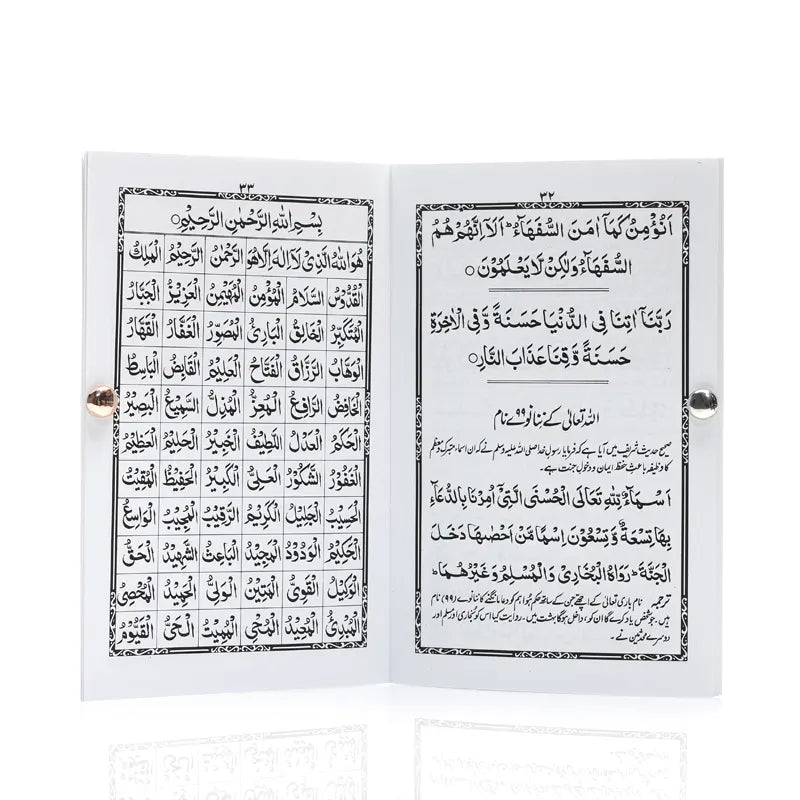 ٣٢
اَنُؤْمِنُ كَمَآ اٰمَنَ السُّفَهَآءُ ؕ اَلَآ اِنَّهُمْ هُمُ
السُّفَهَآءُ وَلٰكِنْ لَّا يَعْلَمُوْنَ ○
رَبَّنَآ اٰتِنَا فِي الدُّنْيَا حَسَنَةً وَّفِي الْاٰخِرَةِ
حَسَنَةً وَّقِنَا عَذَابَ النَّارِ ○
اللہ تعالیٰ کے ننانوے ۹۹ نام
صحیح حدیث شریف میں آیا ہے کہ فرمایا رسول خدا صلی اللہ علیہ وسلم نے کہ ان اسماء متبرک و معظم
کا وظیفہ باعث حفظ ایمان و دخول جنت ہے۔
اَسْمَآءُ لِلّٰهِ تَعَالَى الْحُسْنَى الَّتِيْ اُمِرْنَا بِالدُّعَآءِ
بِهَا تِسْعَةٌ وَّتِسْعُوْنَ اِسْمًا مَّنْ اَحْصٰهَا دَخَلَ
الْجَنَّةَ ؕ رَوَاهُ الْبُخَارِيُّ وَالْمُسْلِمُ وَغَيْرُهُمَا ؕ
ترجمہ نام باری تعالیٰ کے اچھے جن کے ساتھ حکم ہوا ہم کو دعا مانگنے کا ننانوے (۹۹) نام
ہیں۔ جو شخص یاد کرے گا ان کو، داخل ہوگا بہشت میں۔ روایت کیا اس کو بخاری اور مسلم اور
دوسرے محدثین نے۔
٣٣
بِسْمِ اللهِ الرَّحْمٰنِ الرَّحِيْمِ ○
هُوَ اللهُ الَّذِيْ لَآ اِلٰهَ اِلَّا هُوَ الرَّحْمٰنُ الرَّحِيْمُ الْمَلِكُ
الْقُدُّوْسُ السَّلَامُ الْمُؤْمِنُ الْمُهَيْمِنُ الْعَزِيْزُ الْجَبَّارُ
الْمُتَكَبِّرُ الْخَالِقُ الْبَارِئُ الْمُصَوِّرُ الْغَفَّارُ الْقَهَّارُ
الْوَهَّابُ الرَّزَّاقُ الْفَتَّاحُ الْعَلِيْمُ الْقَابِضُ الْبَاسِطُ
الْخَافِضُ الرَّافِعُ الْمُعِزُّ الْمُذِلُّ السَّمِيْعُ الْبَصِيْرُ
الْحَكَمُ الْعَدْلُ اللَّطِيْفُ الْخَبِيْرُ الْحَلِيْمُ الْعَظِيْمُ
الْغَفُوْرُ الشَّكُوْرُ الْعَلِيُّ الْكَبِيْرُ الْحَفِيْظُ الْمُقِيْتُ
الْحَسِيْبُ الْجَلِيْلُ الْكَرِيْمُ الرَّقِيْبُ الْمُجِيْبُ الْوَاسِعُ
الْحَكِيْمُ الْوَدُوْدُ الْمَجِيْدُ الْبَاعِثُ الشَّهِيْدُ الْحَقُّ
الْوَكِيْلُ الْقَوِيُّ الْمَتِيْنُ الْوَلِيُّ الْحَمِيْدُ الْمُحْصِيْ
الْمُبْدِئُ الْمُعِيْدُ الْمُحْيِيْ الْمُمِيْتُ الْحَيُّ الْقَيُّوْمُ